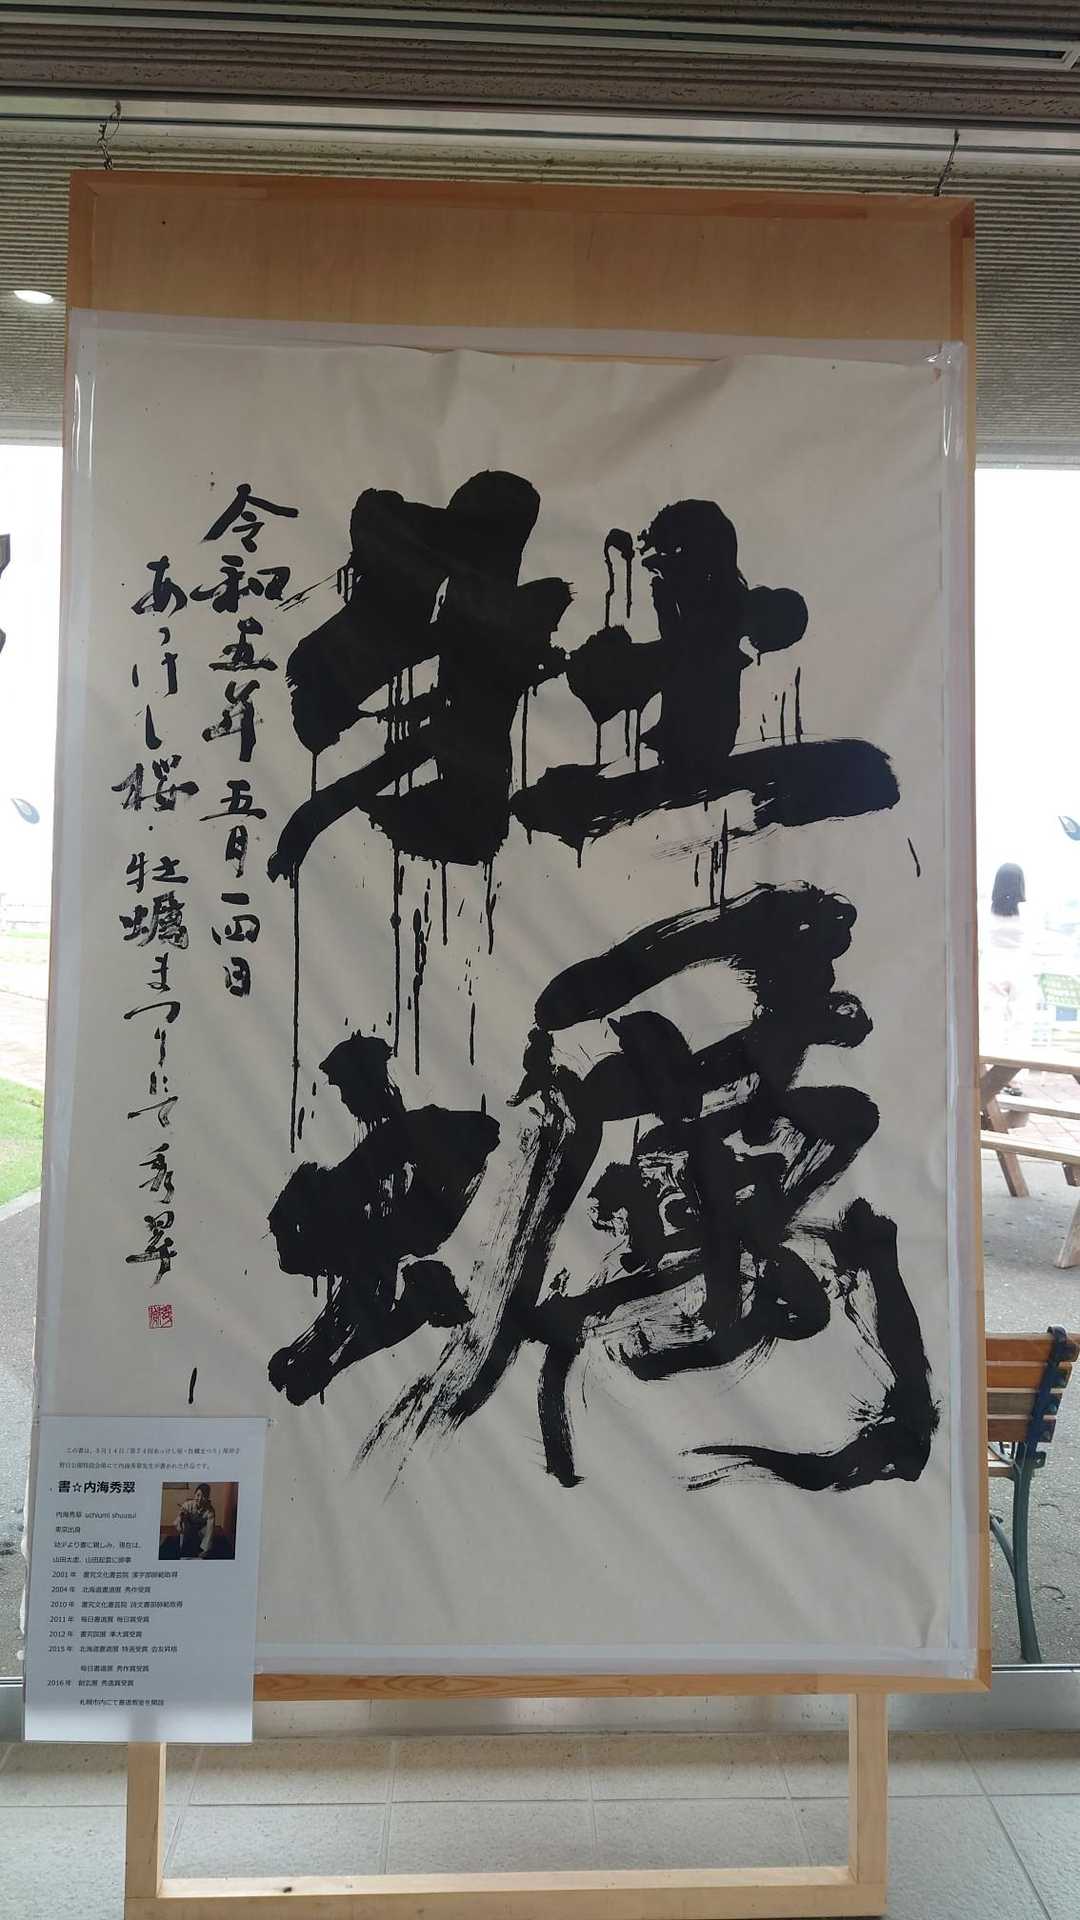 牡蠣
令和五年五月一四日
あっけし桜・牡蠣まつりにて 秀翠
この書は、5月14日「第74回あっけし桜・牡蠣まつり」厚岸子
野日公園特設会場にて内海秀翠先生が書かれた作品です。
書☆内海秀翠
内海秀翠 uchiumi shuusui
東京出身
幼少より書に親しみ、現在は、
山田太虚、山田起雲に師事
2001年 書究文化書芸院 漢字部師範取得
2004年 北海道書道展 秀作受賞
2010年 書究文化書芸院 詩文書部師範取得
2011年 毎日書道展 毎日賞受賞
2012年 書究院展 準大賞受賞
2015年 北海道書道展 特選受賞 会友昇格
毎日書道展 秀作賞受賞
2016年 創玄展 秀逸賞受賞
札幌市内にて書道教室を開設